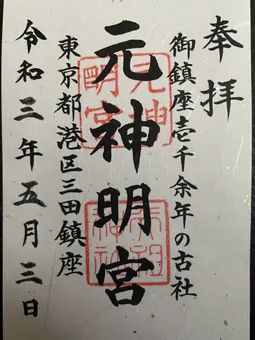 奉拝
御鎮座壱千余年の古社
元神明宮
東京都港区三田鎮座
令和三年五月三日